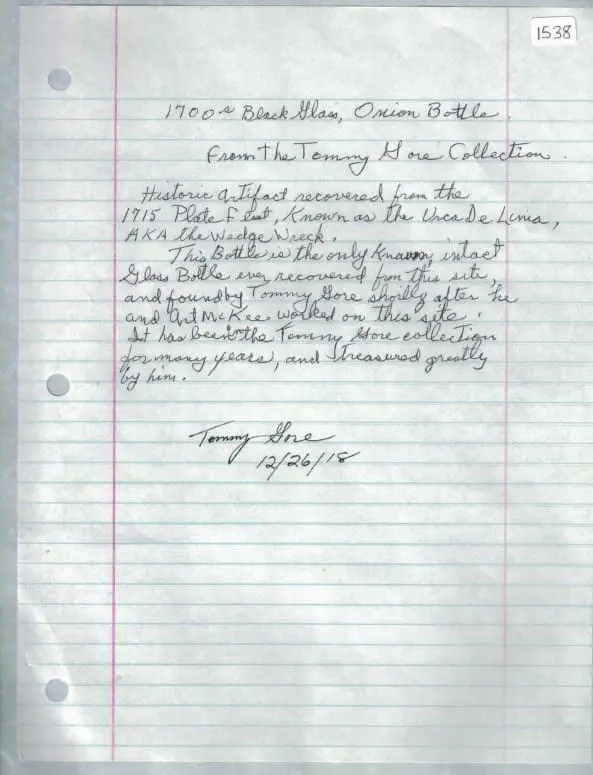 1538
1700s Black Glass, Onion Bottle.
From the Tommy Gore Collection.
Historic Artifact recovered from the
1715 Plate Fleet, Known as the Urca De Lima,
AKA the Wedge Wreck.
This Bottle is the only Known intact
Glass Bottle ever recovered from this site,
and found by Tommy Gore shortly after he
and Art McKee worked on this site.
It has been the Tommy Gore collection
for many years, and treasured greatly
by him.
Tommy Gore
12/26/18